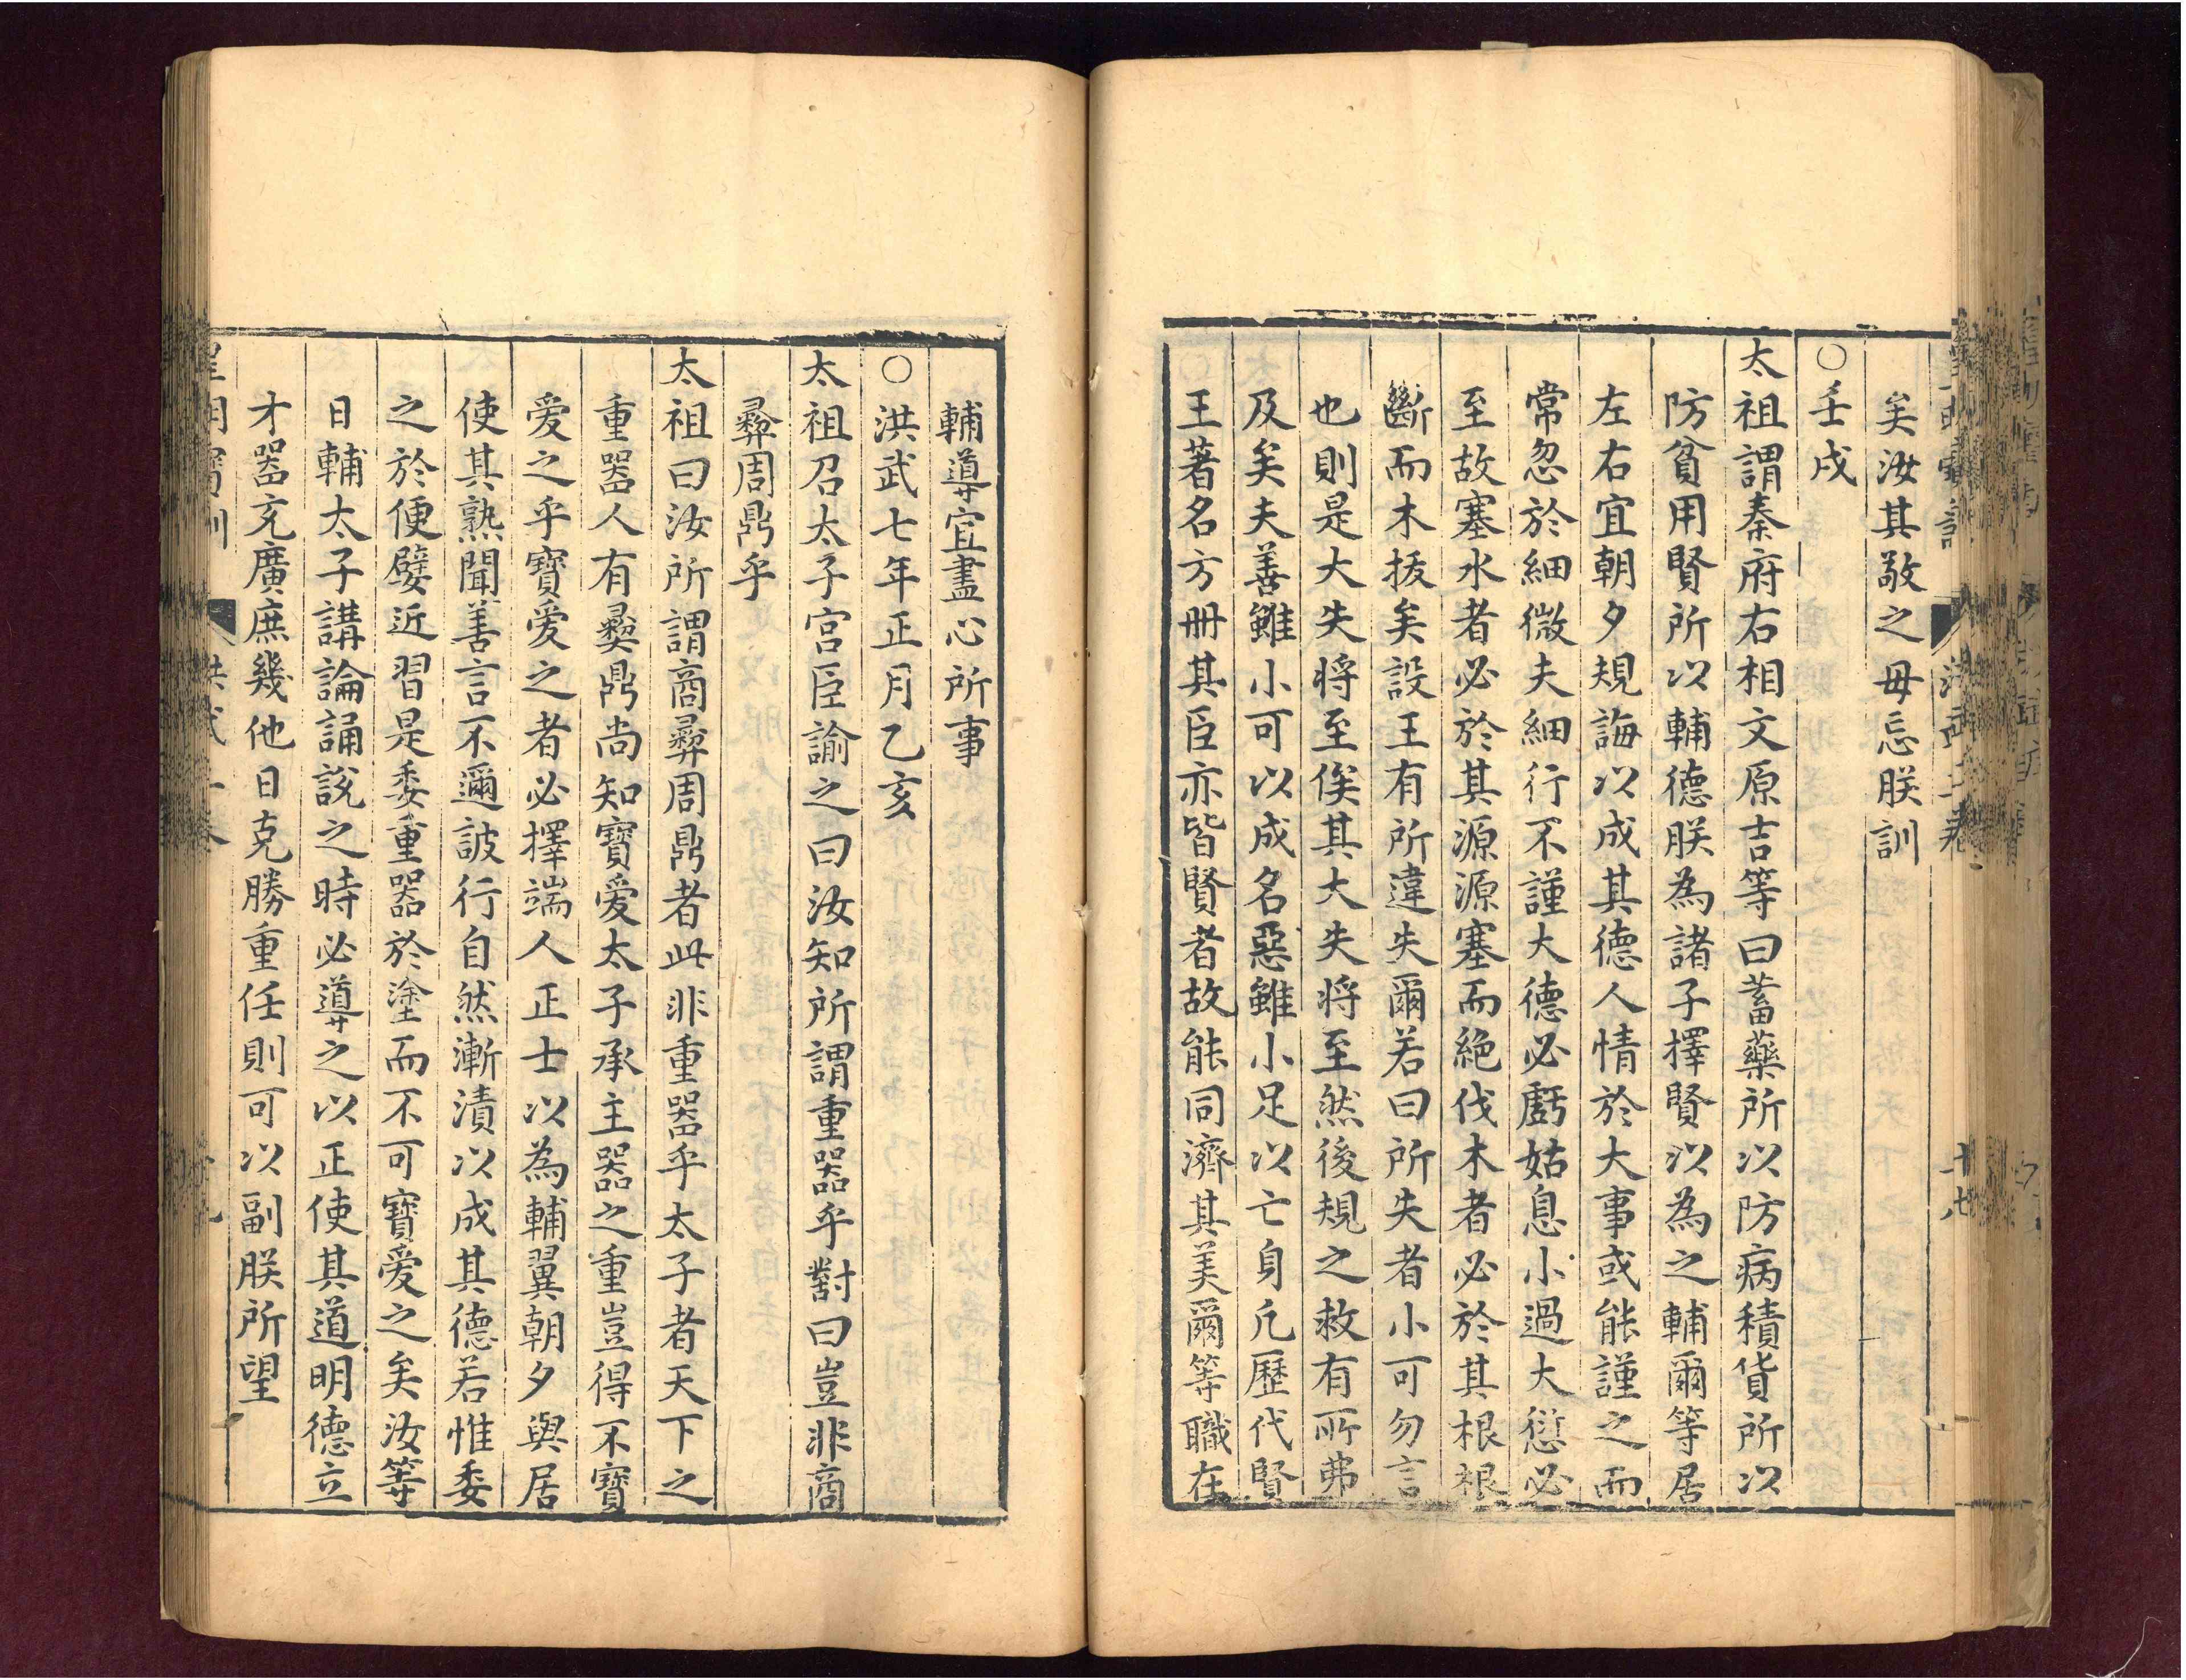 矣汝其敬之毋忘朕訓
○壬戌
太祖謂秦府右相文原吉等曰蓄藥所以防病積貨所以
防貧用賢所以輔德朕為諸子擇賢以為之輔爾等居
左右宜朝夕規誨以成其德人情於大事或能謹之而
常忽於細微夫細行不謹大德必虧姑息小過大愆必
至故塞水者必於其源源塞而絶伐木者必於其根根
斷而木拔矣設王有所違失爾若曰所失者小可勿言
也則是大失將至俟其大失將至然後規之救有所弗
及矣夫善雖小可以成名惡雖小足以亡身凢歷代賢
王著名方冊其臣亦皆賢者故能同濟其美爾等職在
輔導宜盡心所事
○洪武七年正月乙亥
太祖召太子宫臣諭之曰汝知所謂重器乎對曰豈非商
彛周鼎乎
太祖曰汝所謂商彛周鼎者此非重器乎太子者天下之
重器人有彛鼎尚知寶愛太子承主器之重豈得不寶
愛之乎寶愛之者必擇端人正士以為輔翼朝夕與居
使其熟聞善言不邇詖行自然漸漬以成其德若惟委
之於便嬖近習是委重器於塗而不可寶愛之矣汝等
日輔太子講論誦說之時必導之以正使其道明德立
才器充廣庶幾他日克勝重任則可以副朕所望